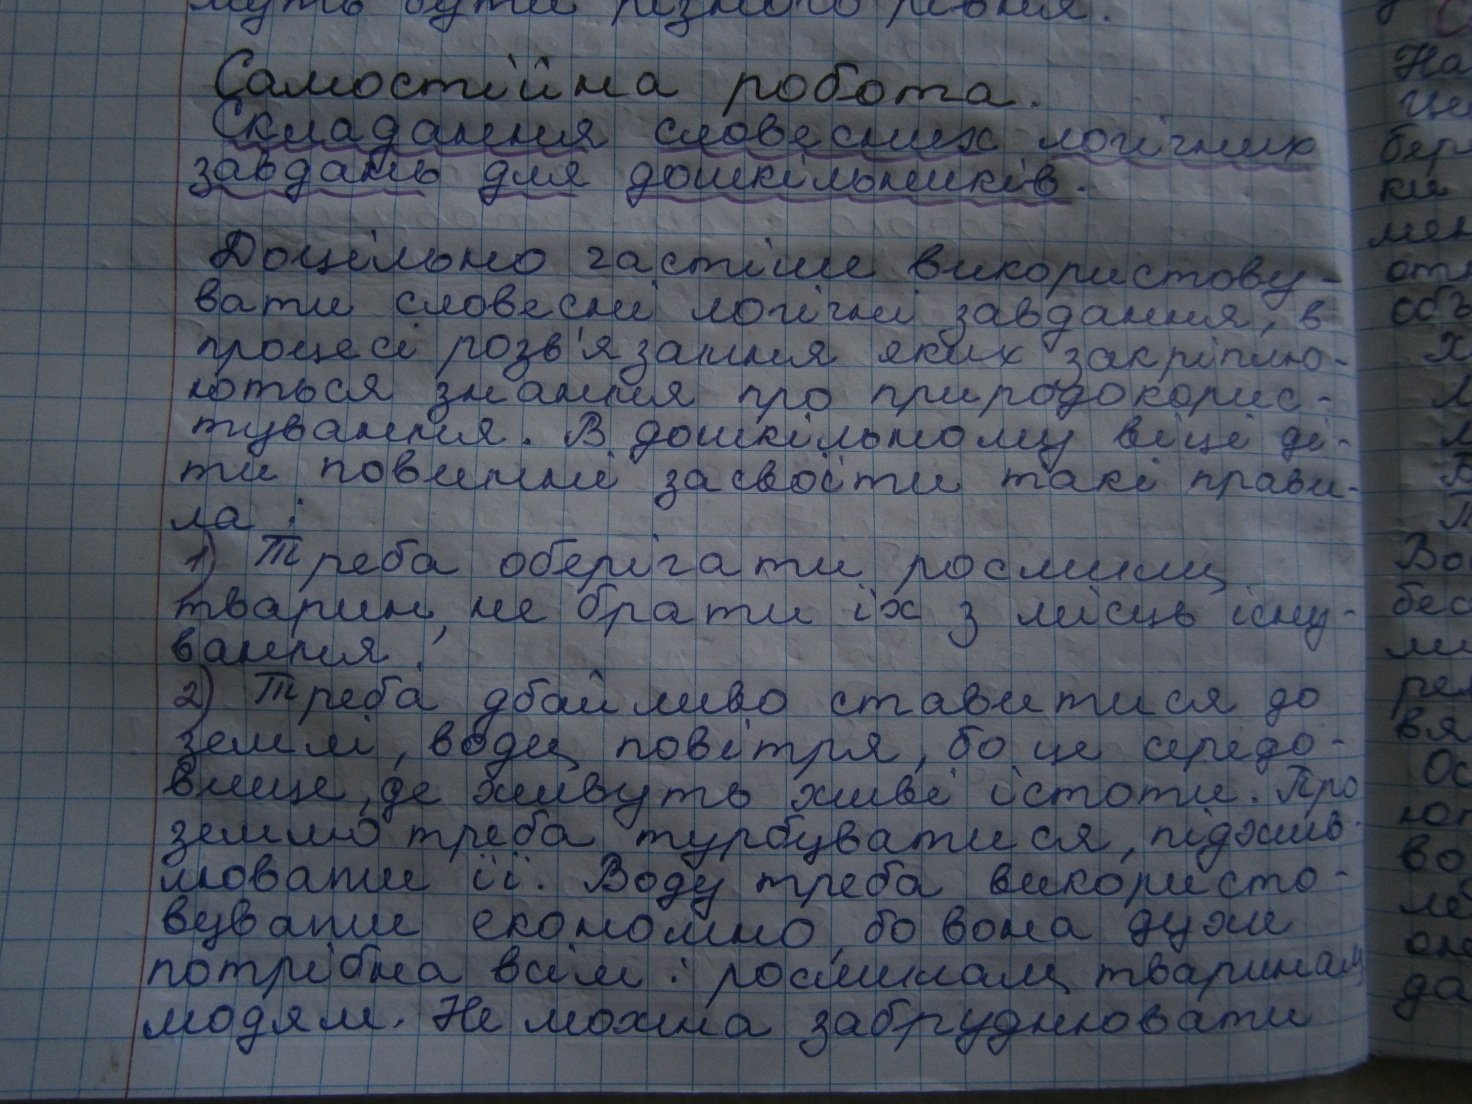 бути різного рівня.
Самостійна робота.
Складання словесних логічних
завдань для дошкільників.
Доцільно частіше використову-
вати словесні логічні завдання, в
процесі розв'язання яких закріплю-
ються знання про природокорис-
тування. В дошкільному віці ді-
ти повинні засвоїти такі прави-
ла:
1) Треба оберігати рослини,
тварин, не брати їх з місць існу-
вання;
2) Треба дбайливо ставитися до
землі, води, повітря, бо це середо-
вище, де живуть живі істоти. Про
землю треба турбуватися, піджив-
лювати її. Воду треба використо-
вувати економно, бо вона дуже
потрібна всім: рослинам, тваринам,
людям. Не можна забруднювати